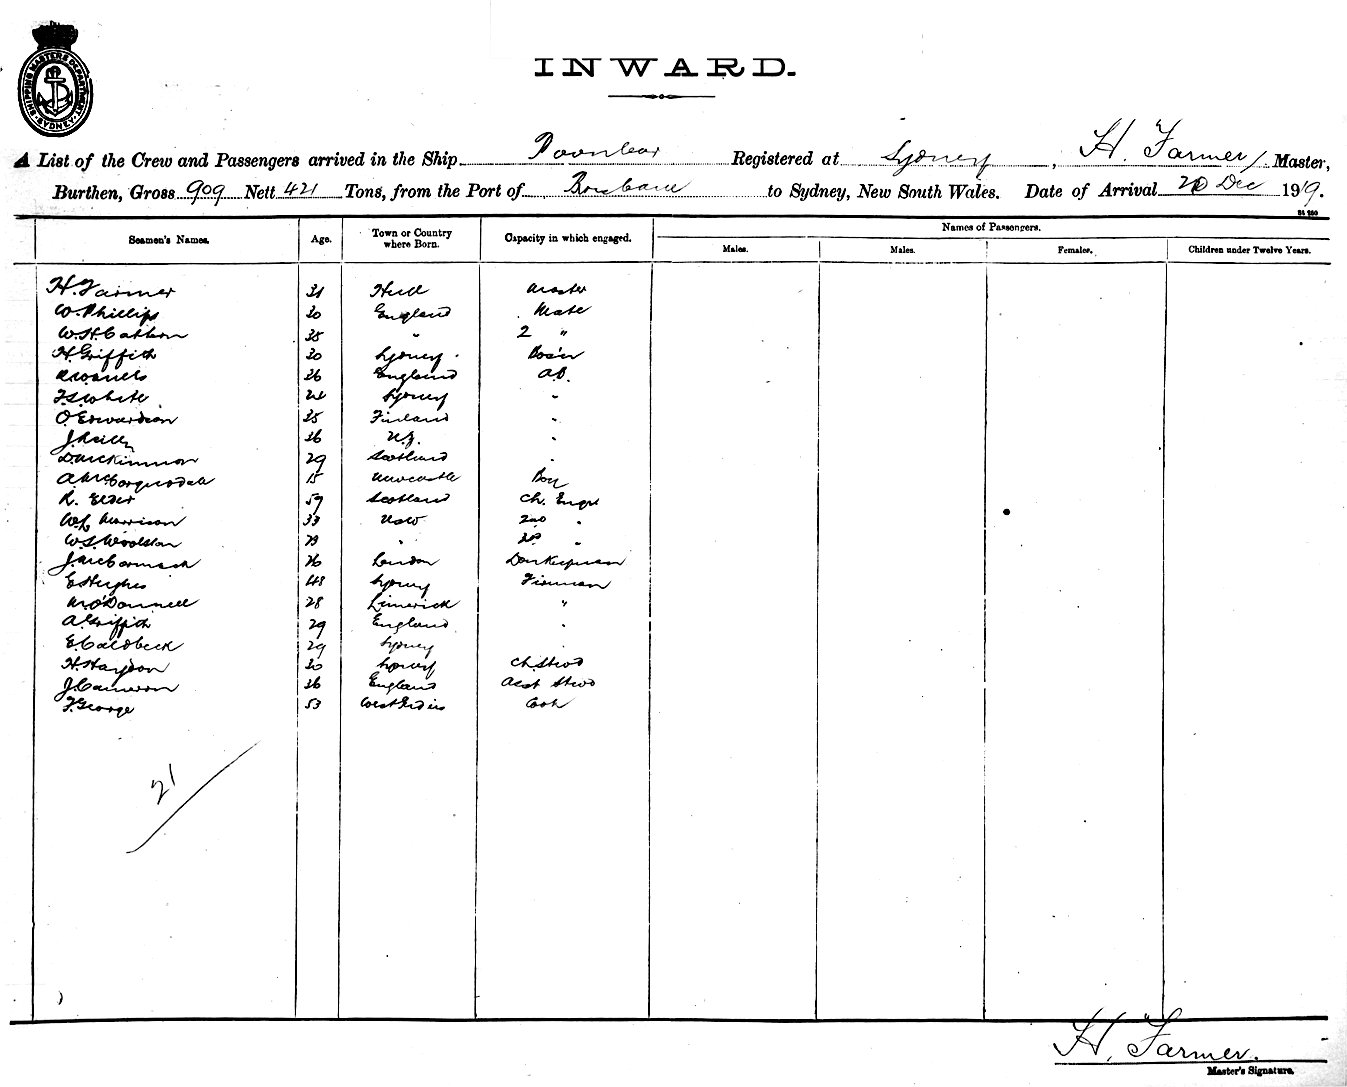 SHIPPING MASTERS DEPARTMENT SYDNEY
INWARD.
A List of the Crew and Passengers arrived in the Ship Registered at Sydney, H. Farmer, Master,
Burthen, Gross 909 Nett 421 Tons, from the Port of Brisbane to Sydney, New South Wales. Date of Arrival 20 Dec 1919.
Seamen's Names. Age. Town or Country where Born. Capacity in which engaged. Names of Passengers.
Males. Males. Females. Children under Twelve Years.
H. Farmer Hull Master
W. Phillips 30 England Mate
W. H. 2 "
H. Griffith 30 Sydney Bos'n
36 England A.B.
F. S. White Sydney "
O. 35 Finland "
J. Reilly 36 N.Z. "
D. McKinnon 29 Scotland "
A. 15 Newcastle Boy
R. Elder 59 Scotland Ch. Engr
Morrison 33 NSW 2nd "
W. S. Woolston " 3rd "
J. McCormack London Donkeyman
E. Hughes 48 Sydney Fireman
M. O'Donnell 28 Limerick "
A. Griffith 29 England "
E. Caldbeck 29 Sydney "
H. Haydon 30 Sydney Ch. Stwd
J. Cameron 36 England Asst Stwd
F. George 53 West Indies Cook
21
H. Farmer.
Master's Signature.